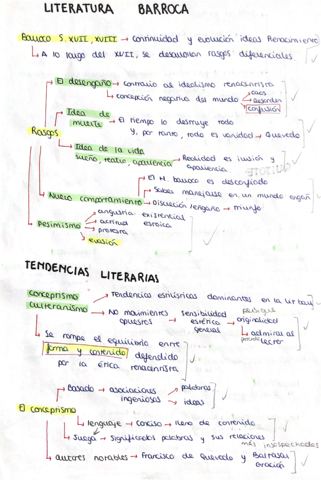 LITERATURA BARROCA
Barroco S. XVII, XVIII → continuidad y evolución ideas Renacimiento
↳ A lo largo del XVII, se desarrollan rasgos diferenciales
El desengaño → contrario al idealismo renacentista
→ concepción negativa del mundo → caos
→ desorden
→ confusión
Idea de muerte → El tiempo lo destruye todo
Y, por tanto, todo es vanidad → Quevedo
Rasgos
Idea de la vida
sueño, teatro, apariencia → Realidad es ilusión y apariencia
→ El H. barroco es desconfiado
→ Saber manejarse en un mundo
Nuevo comportamiento → Discreción → triunfo
Pesimismo → angustia existencial
→ actitud estoica
→ protesta
→ evasión
TENDENCIAS LITERARIAS
conceptismo
culteranismo → Tendencias estilísticas dominantes en la
→ No movimientos opuestos → sensibilidad estética general → originalidad
→ admirar al lector
↳ Se rompe el equilibrio entre
forma y contenido defendido
por la ética renacentista
→ Basado → asociaciones ingeniosas → palabras
→ ideas
El conceptismo
→ lenguaje → conciso → lleno de contenido
↳ Juega → Significados palabras y sus relaciones
más insospechadas
↳ autores notables → Francisco de Quevedo y Baltasar
Gracián